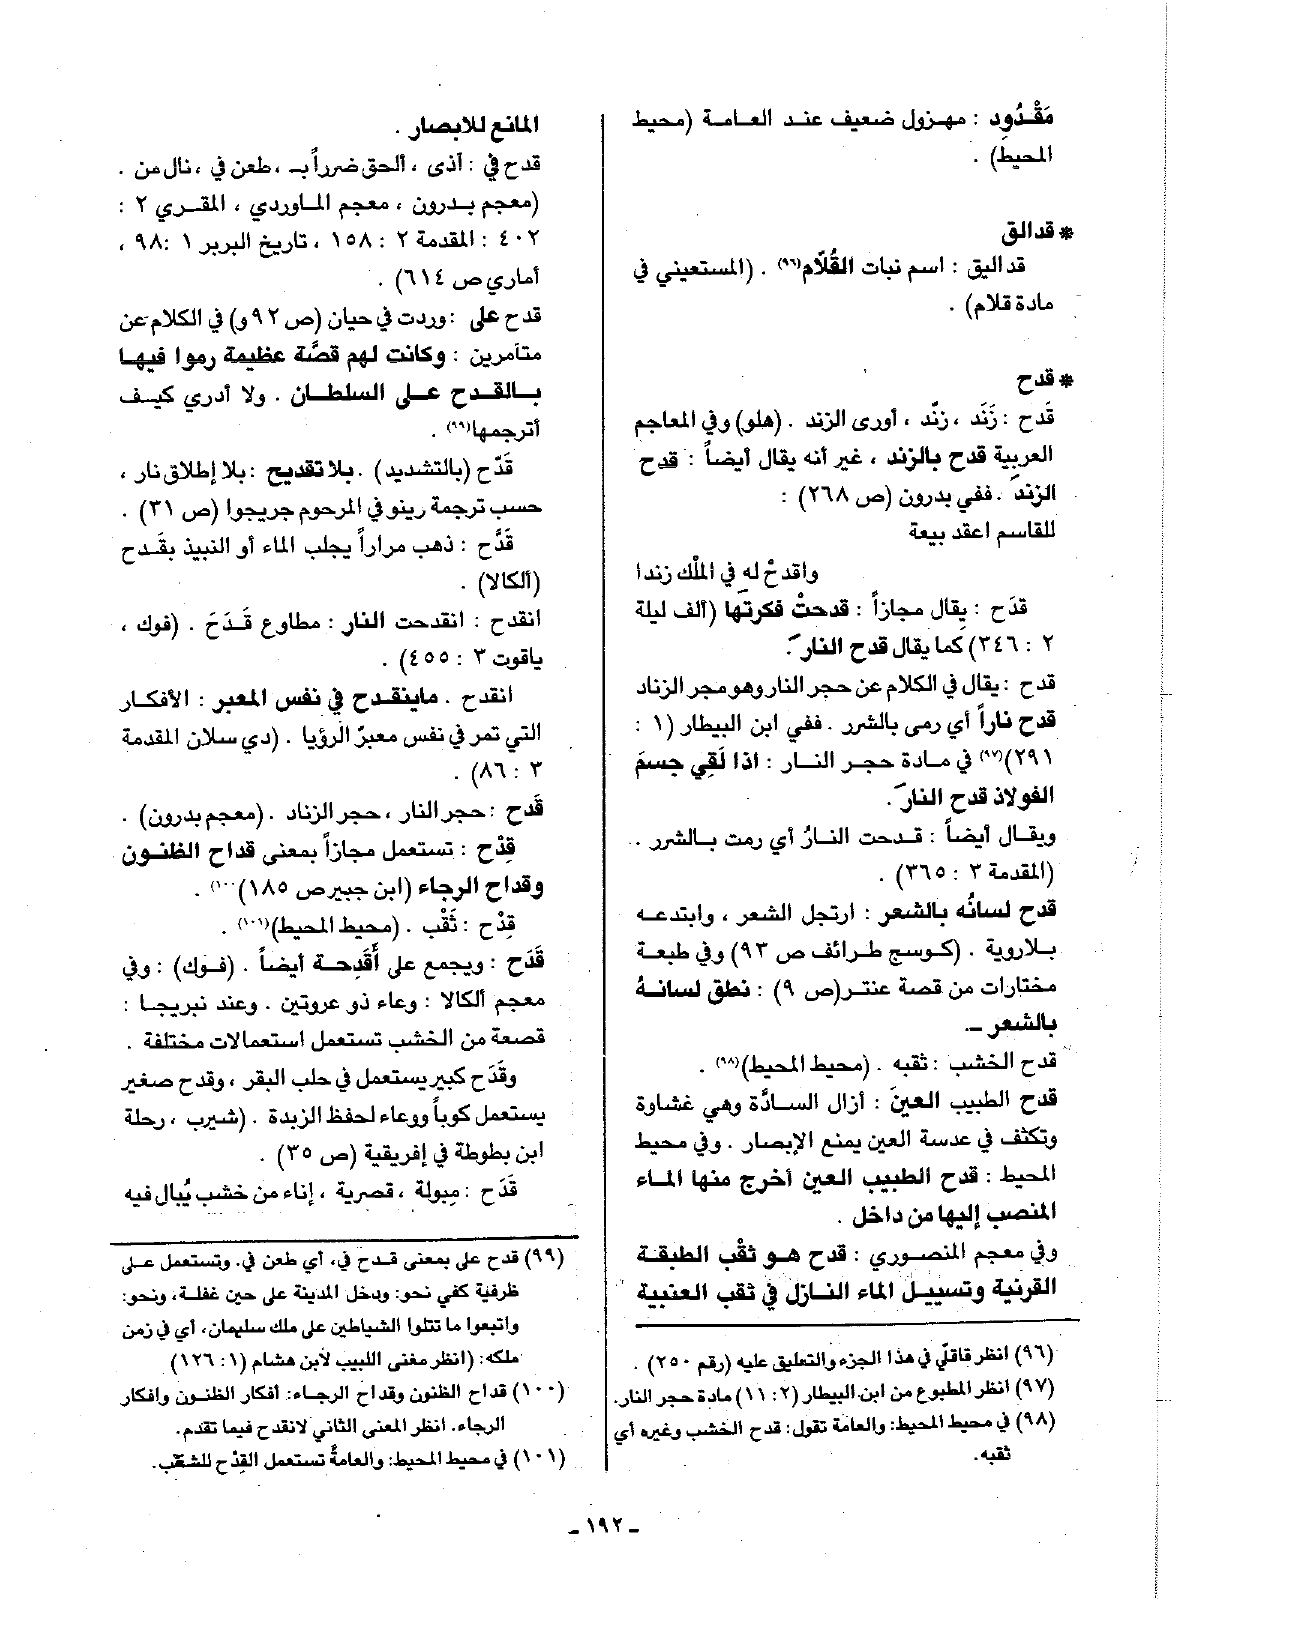 مَقْدُود : مهزول ضعيف عند العامة (محيط
المحيط) .
* قدالق
قداليق : اسم نبات القُلاّم(٩٦) . (المستعيني في
مادة قلام) .
* قدح
قَدَح : زَنَد ، زنّد ، أورى الزند . (هلو) وفي المعاجم
العربية قدح بالزند ، غير أنه يقال أيضاً : قدح
الزندَ . ففي بدرون (ص ٢٦٨) :
للقاسم اعقد بيعة
واقدحْ له في الملْك زندا
قدَح : يقال مجازاً : قدحتْ فكرتها (ألف ليلة
٢ : ٣٤٦) كما يقال قدح النارَ .
قدح : يقال في الكلام عن حجر النار وهو مجر الزناد
قدح ناراً أي رمى بالشرر . ففي ابن البيطار (١ :
٢٩١)(٩٧) في مادة حجر النار : اذا لَقِي جسمَ
الفولاذ قدح النارَ .
ويقال أيضاً : قدحت النارُ أي رمت بالشرر .
(المقدمة ٣ : ٣٦٥) .
قدح لسانُه بالشعر : ارتجل الشعر ، وابتدعه
بلاروية . (كوسج طرائف ص ٩٣) وفي طبعة
مختارات من قصة عنتر (ص ٩) : نطق لسانهُ
بالشعر ــ
قدح الخشب : ثقبه . (محيط المحيط)(٩٨) .
قدح الطبيب العينَ : أزال السادّة وهي غشاوة
وتكثف في عدسة العين يمنع الإبصار . وفي محيط
المحيط : قدح الطبيب العين أخرج منها الماء
المنصب إليها من داخل .
وفي معجم المنصوري : قدح هو ثقْب الطبقة
القرنية وتسييل الماء النازل في ثقب العنبية
(٩٦) انظر قاقلّي في هذا الجزء والتعليق عليه (رقم ٢٥٠) .
(٩٧) انظر المطبوع من ابن البيطار (٢ : ١١) مادة حجر النار.
(٩٨) في محيط المحيط: والعامة تقول: قدح الخشب وغيره أي
ثقبه.
المانع للابصار .
قدح في : أذى ، ألحق ضرراً بـ ، طعن في ، نال من .
(معجم بدرون ، معجم الماوردي ، المقري ٢ :
٤٠٢ : المقدمة ٢ : ١٥٨ ، تاريخ البربر ١ : ٩٨ ،
أماري ص ٦١٤) .
قدح على : وردت في حيان (ص ٩٢ و) في الكلام عن
متآمرين : وكانت لهم قصَّة عظيمة رموا فيها
بالقدح على السلطان . ولا أدري كيف
أترجمها(٩٩) .
قَدّح (بالتشديد) . بلا تقديح : بلا إطلاق نار ،
حسب ترجمة رينو في المرحوم جريجوا (ص ٣١) .
قَدَّح : ذهب مراراً يجلب الماء أو النبيذ بقَدح
(ألكالا) .
انقدح : انقدحت النار : مطاوع قَدَحَ . (فوك ،
ياقوت ٣ : ٤٥٥) .
انقدح . ماينقدح في نفس المعبر : الأفكار
التي تمر في نفس معبرّ الرؤيا . (دي سلان المقدمة
٣ : ٨٦) .
قَدح : حجر النار ، حجر الزناد . (معجم بدرون) .
قِدْح : تستعمل مجازاً بمعنى قداح الظنون
وقداح الرجاء (ابن جبير ص ١٨٥)(١٠٠) .
قدْح : ثَقْب . (محيط المحيط)(١٠١) .
قَدَح : ويجمع على أَقدحة أيضاً . (فوك) : وفي
معجم ألكالا : وعاء ذو عروتين . وعند نبريجا :
قصعة من الخشب تستعمل استعمالات مختلفة .
وقَدَح كبير يستعمل في حلب البقر ، وقدح صغير
يستعمل كوباً ووعاء لحفظ الزبدة . (شيرب ، رحلة
ابن بطوطة في إفريقية (ص ٣٥) .
قَدَح : مبولة ، قصرية ، إناء من خشب يُبال فيه
(٩٩) قدح على بمعنى قدح في، أي طعن في. وتستعمل على
ظرفية كفي نحو: ودخل المدينة على حين غفلة، ونحو:
واتبعوا ما تتلوا الشياطين على ملك سليمان، أي في زمن
ملكه: (انظر مغنى اللبيب لأبن هشام (١: ١٢٦)
(١٠٠) قداح الظنون وقداح الرجاء: أفكار الظنون وافكار
الرجاء. انظر المعنى الثاني لانقدح فيما تقدم.
(١٠١) في محيط المحيط: والعامةُ تستعمل القدْح للشقب.
ـ ١٩٢ ـ